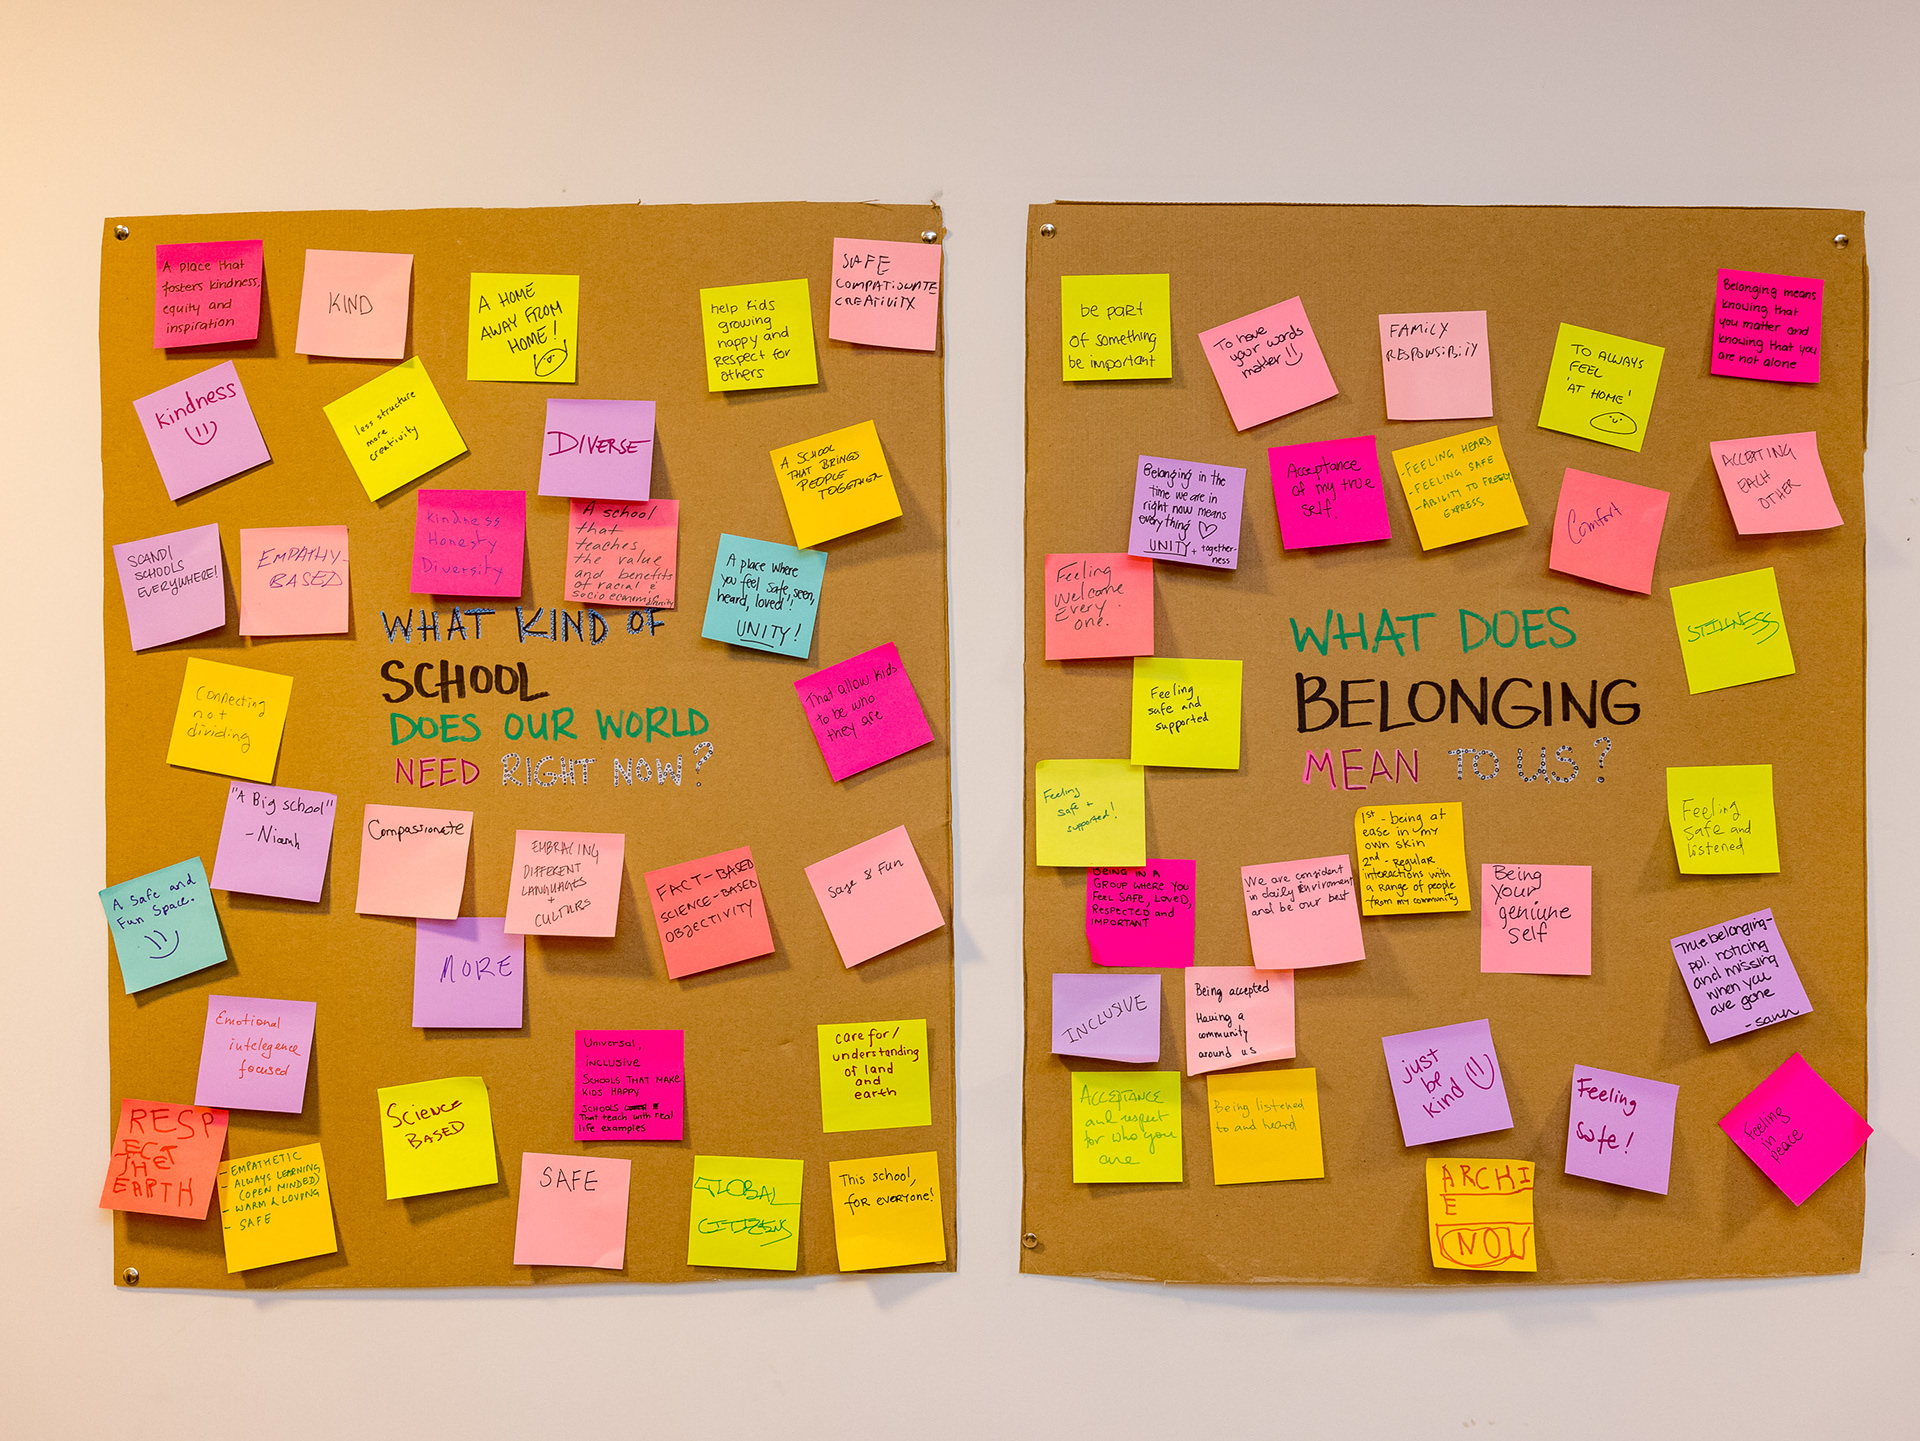 A place that
fosters kindness,
equity and
inspiration
KIND
A HOME
AWAY FROM
HOME!
help kids
growing
happy and
respect for
others
SAFE
COMPATIOUNATE
CREATIVITY
Kindness
less structure
more
creativity
DIVERSE
A SCHOOL
THAT BRINGS
PEOPLE
TOGETHER
SCANDI
SCHOOLS
EVERYWHERE!
EMPATHY-
BASED
Kindness
Honesty
Diversity
A school
that
teaches
the value
and benefits
of racial &
socio economic
A place where
you feel safe, seen,
heard, loved!
UNITY!
WHAT KIND OF
SCHOOL
DOES OUR WORLD
NEED RIGHT NOW?
Connecting
not
dividing
That allow kids
to be who
they are
"A Big school"
- Niamh
Compassionate
EMBRACING
DIFFERENT
LANGUAGES
+
CULTURS
FACT-BASED
SCIENCE-BASED
OBJECTIVITY
Safe & Fun
A Safe and
Fun Space.
MORE
Emotional
intelegence
focused
Universal,
inclusive
SCHOOLS THAT MAKE
KIDS HAPPY
SCHOOLS
That teach with real
life examples
care for/
understanding
of land
and
earth
RESP
ECT
THE
EARTH
- EMPATHETIC
- ALWAYS LEARNING
(OPEN MINDED)
- WARM & LOVING
- SAFE
SCIENCE
BASED
SAFE
GLOBAL
CITIZENS
This school,
for everyone!
be part
of something
be important
To have
your words
matter
FAMILY
RESPONSIBILITY
TO ALWAYS
FEEL
'AT HOME'
Belonging means
knowing that
you matter and
knowing that you
are not alone
Belonging in the
time we are in
right now means
everything
UNITY + together-
ness
Acceptance
of my true
self.
- FEELING HEARD
- FEELING SAFE
- ABILITY TO FREELY
EXPRESS
Comfort
ACCEPTING
EACH
OTHER
Feeling
Welcome
Every
one.
STILLNESS
Feeling
safe and
supported
WHAT DOES
BELONGING
MEAN TO US?
Feeling
safe +
supported!
1st - being at
ease in my
own skin
2nd - regular
interactions with
a range of people
from my community
Feeling
Safe and
listened
BEING IN A
GROUP WHERE YOU
FEEL SAFE, LOVED,
RESPECTED and
IMPORTANT
We are confident
in daily Enviroment
and be our best
Being
your
geniune
self
True belonging-
ppl. noticing
and missing
when you
are gone
INCLUSIVE
Being accepted
Having a
community
around us
just
be
kind
Feeling
safe!
Feeling
in
peace
Acceptance
and respect
for who you
are
Being listened
to and heard
ARCHI
E
NOW